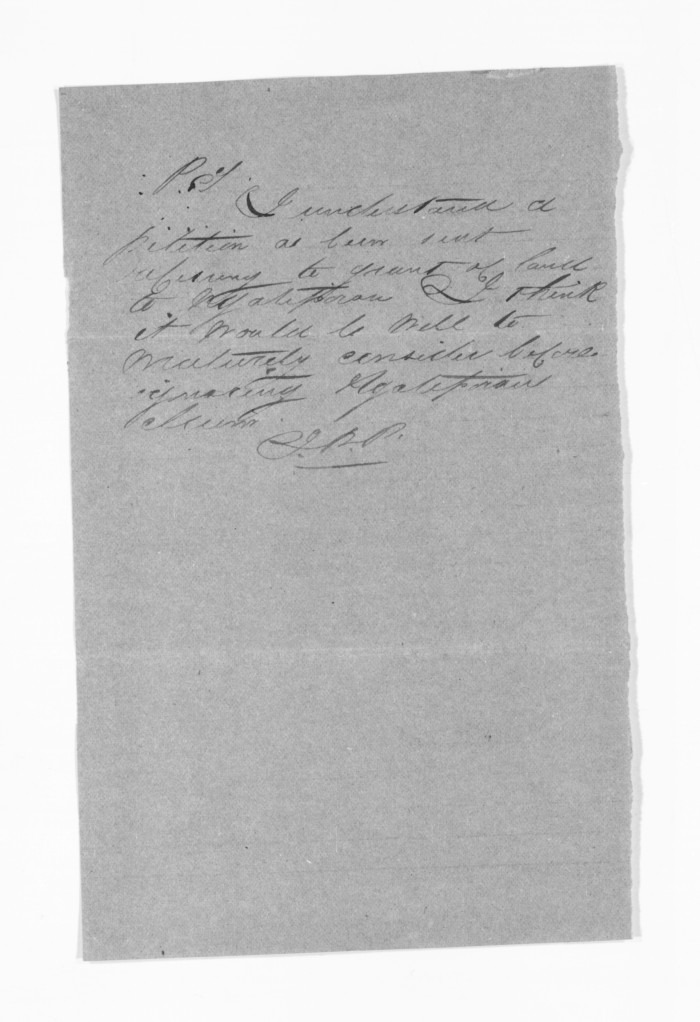 P.S.
I understand a
petition as been sent
refering to grant of land
to Ngatiporou I think
it would be well to
maturely consider before
ignoring Ngatiporou
claim.
J. P. P.